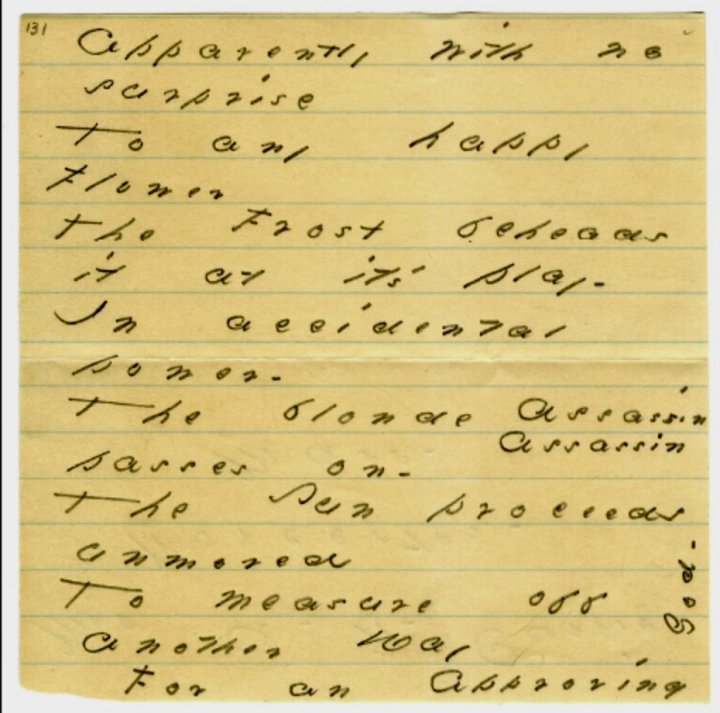 131
Apparently with no
surprise
To any happy
Flower
The Frost beheads
it at it's play -
In accidental
power -
The blonde Assassin
Assassin
passes on -
The Sun proceeds
unmoved
To measure off
another Day
For an Approving
God -